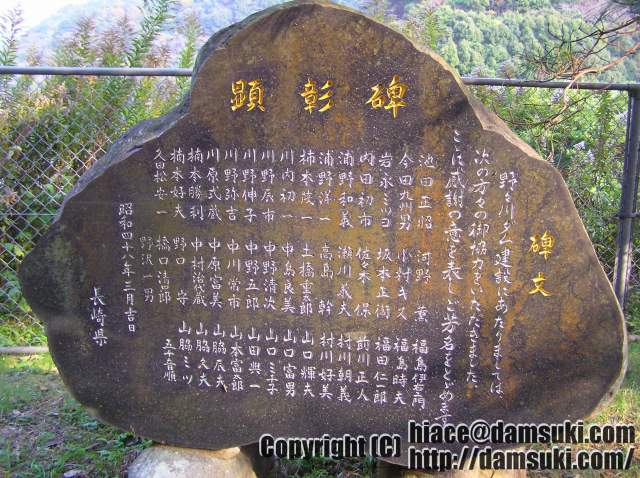 顕彰碑
碑文
野々川ダム建設にあたりましては
次の方々の御協力をいただきました
ここに感謝の意を表しご芳名をとどめます
池田正昭 河野薫 福島伊右ェ門
今田九州男 小村キス 福島時夫
岩永ミツヨ 坂本正衛 福田仁一郎
内田初市 佐々木保 前川正人
浦野和義 瀬川義夫 村川朝義
浦野洋一 高島幹 村川好美
柿本茂一 土橋重弥 山口輝夫
川内初一 中島良美 山口富男
川野辰市 中野清次 山口ミチ子
川野伸子 中野五郎 山田興一
川野弥吉 中川常市 山本富弥
川原武蔵 中原富美 山脇辰夫
楠本勝利 中村茂蔵 山脇久夫
楠本好夫 野口守 山脇ミツ
久田松安一 橋口清四郎 五十音順
野沢一男
昭和四十八年三月吉日
長崎県
Copyright (C) hiace@damsuki.com
http://damsuki.com/